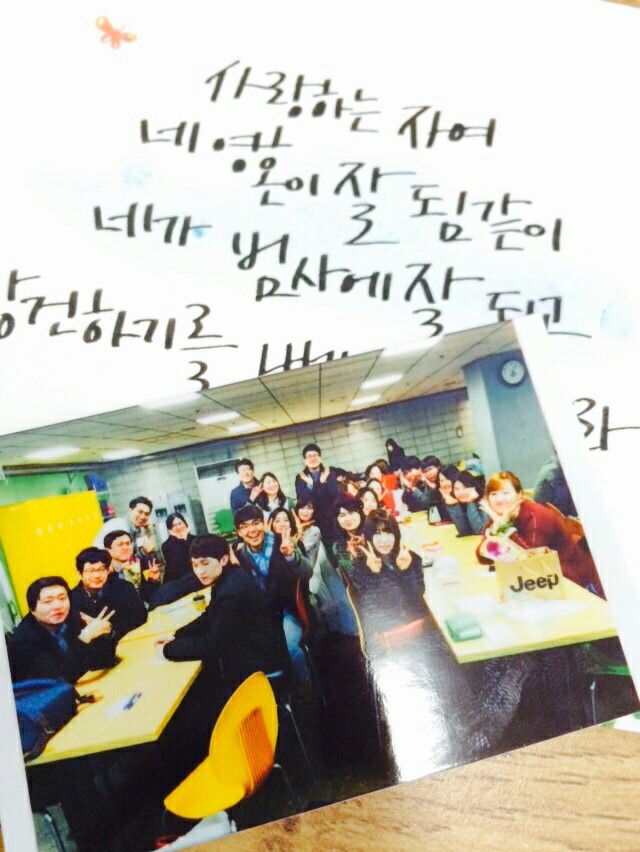 사랑하는 자여
네 영혼이 잘 됨같이
네가 범사에 잘 되고
강건하기를
라
Jeep